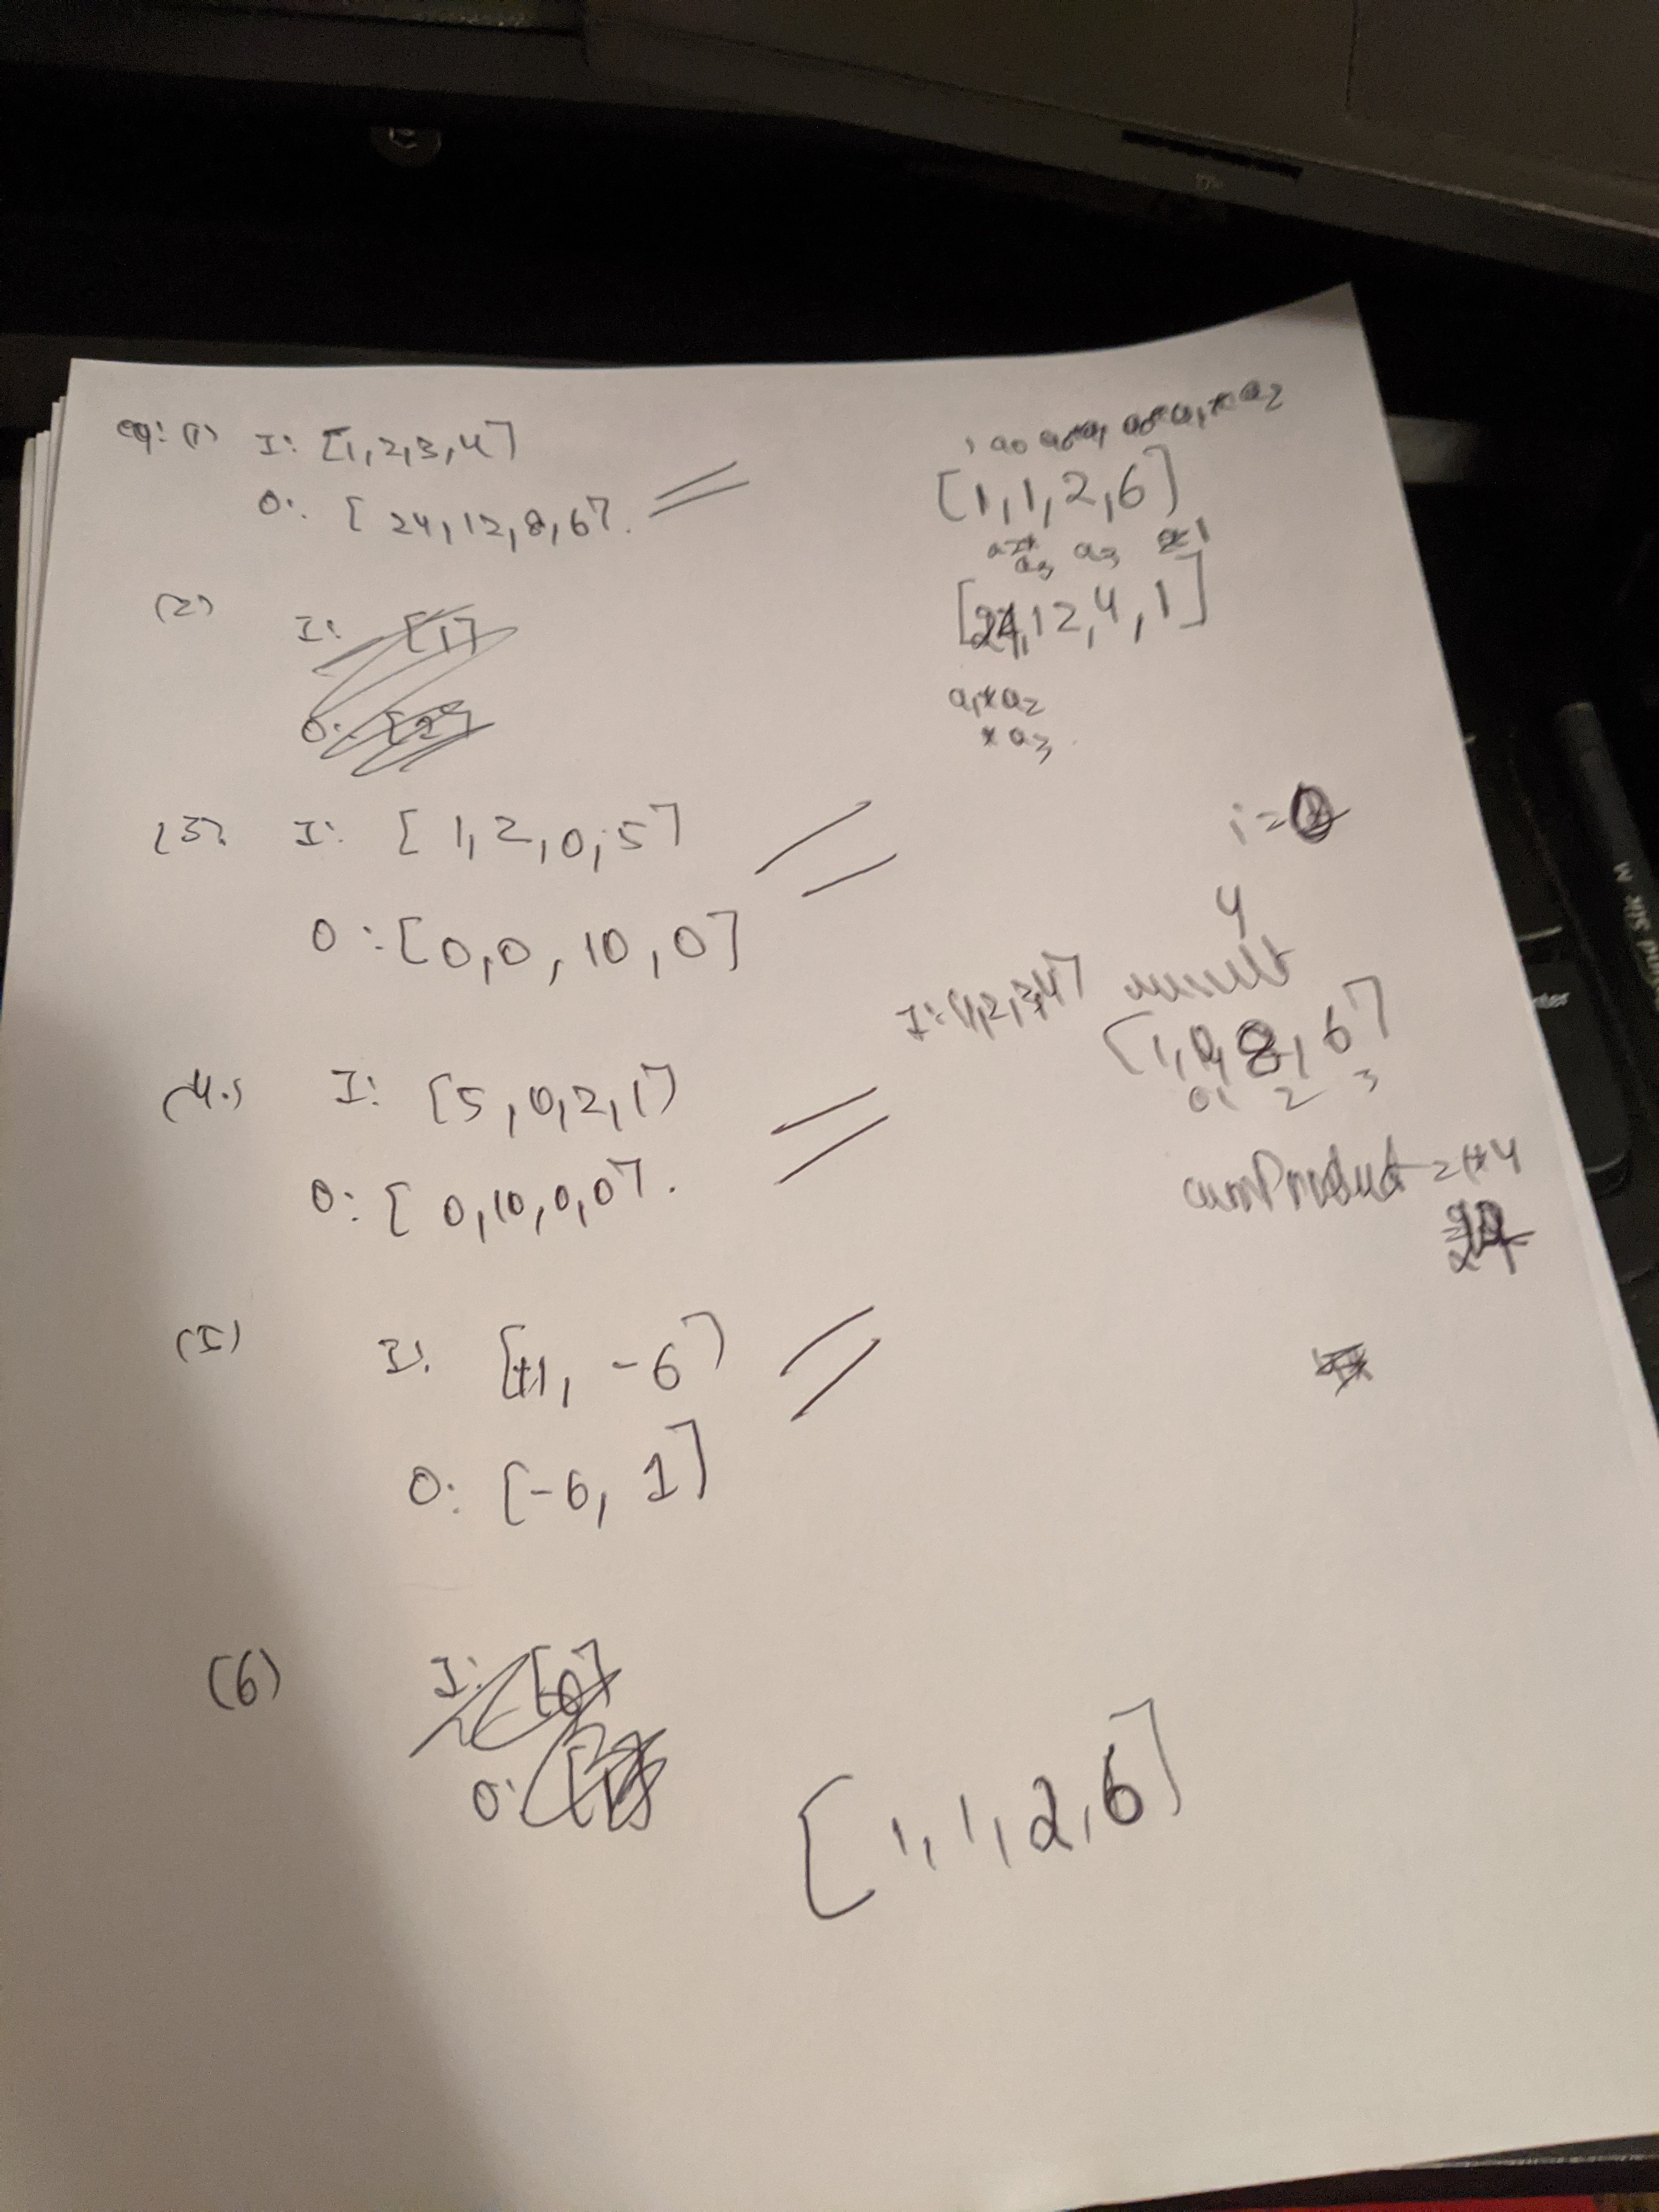 eg: (1) I: [1,2,3,4]
O: [24,12,8,6].
(2)
I: [1]
(3). I: [1,2,0,5]
O: [0,0,10,0]
(4.) I: [5,0,2,1]
O: [0,10,0,0].
(5) I: [+1, -6]
O: [-6, 1]
(6) I: [0]
O:
1 a0 a0*a1 a0*a1*a2
[1,1,2,6]
a2*
a3 a3 1
[24,12,4,1]
a1*a2
*a3
i=
4
I: [1,2,3,4] result
[1, 8, 6]
2 3
cumProduct =
24
[1,1,2,6]